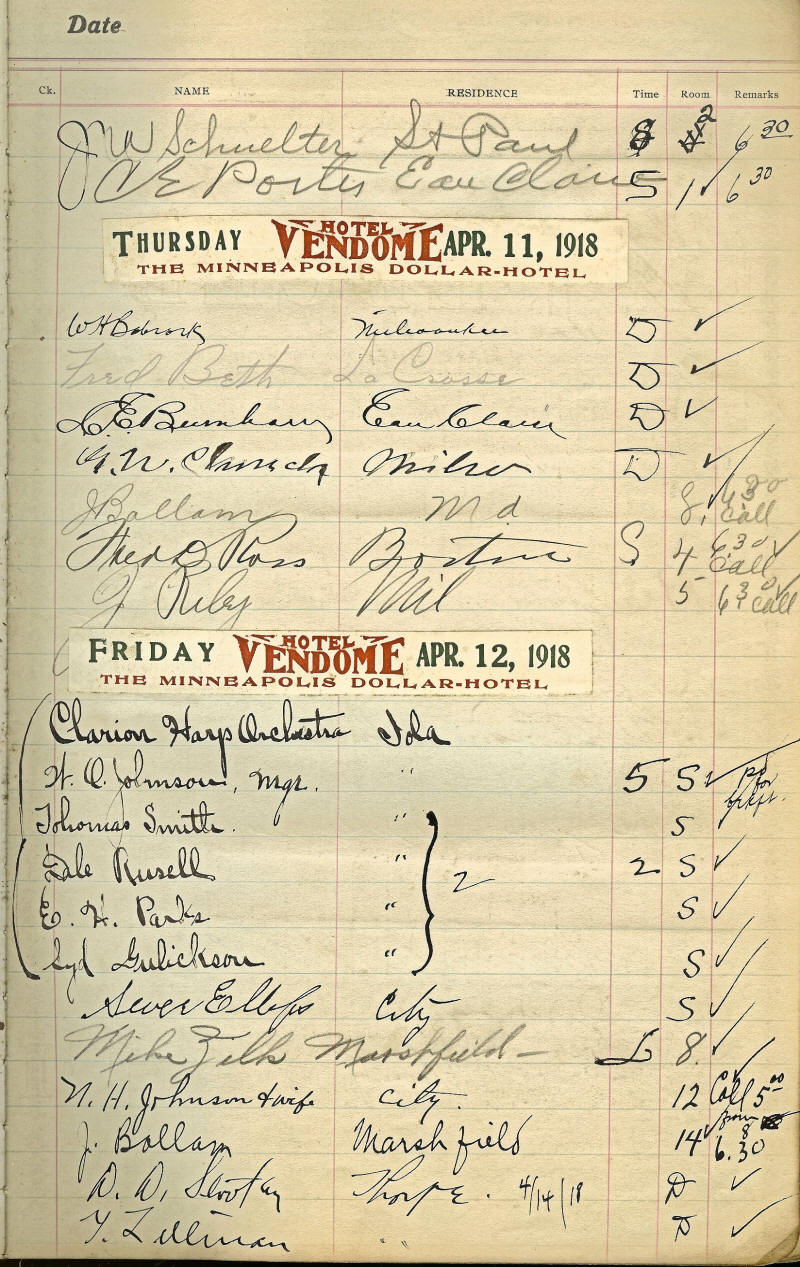 Date
Ck. NAME RESIDENCE Time Room Remarks
J W Schuelter St Paul S 2 6 30
C E Porter Eau Claire S 1 ✓ 6 30
THURSDAY HOTEL VENDOME APR. 11, 1918
THE MINNEAPOLIS DOLLAR-HOTEL
W H Milwaukee D ✓
Fred Beth La Crosse D ✓
Eau Claire D ✓
W. Milw D ✓
J Bollam M d 8 ✓ 6 30 Call
Fred D Ross Boston S 4 6 30 ✓ Call
J Riley Mil 5 6 30 ✓ Call
FRIDAY HOTEL VENDOME APR. 12, 1918
THE MINNEAPOLIS DOLLAR-HOTEL
Clarion Harp Orchestra Iola
H. O. Johnson, mgr. " 5 S ✓ pd for brkft.
Thomas Smith. " S
Dale Rusell " 2 2 S ✓
E. H. Parks " S ✓
Syd Gulickson " S ✓
City S ✓
Mike Zilk Marshfield — L 8. ✓
N. H. Johnson & wife City. 12 ✓ Call 5 00
J. Bollam Marshfield 14 ✓ from 8 6.30
D. D. Thorpe. 4/14/18 D ✓
T. Lillman " D ✓